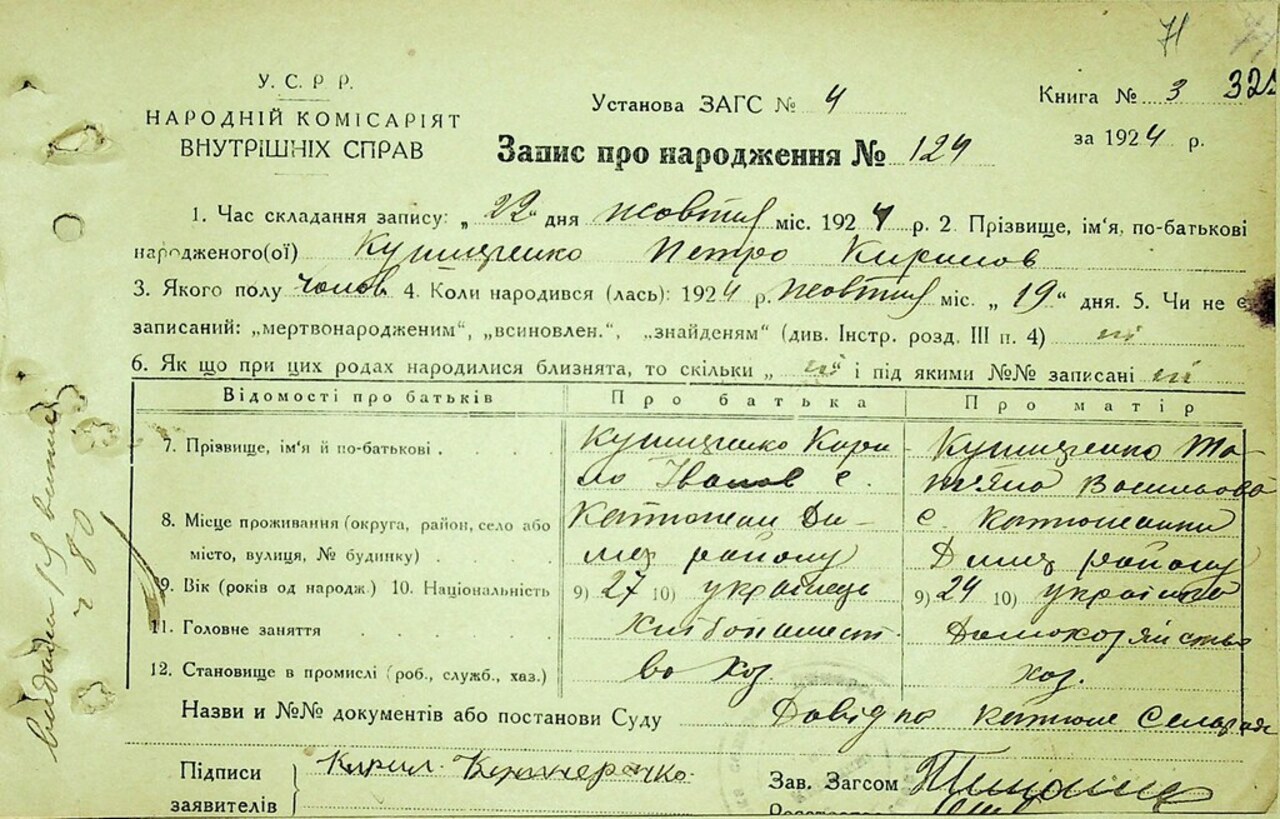 71
У. С. Р Р.
НАРОДНІЙ КОМІСАРІЯТ
ВНУТРІШНІХ СПРАВ
Установа ЗАГС № 4
Книга № 3
за 1924 р.
Запис про народження № 124
1. Час складання запису: „22“ дня жовтня міс. 1924 р. 2. Прізвище, ім'я, по-батькові
народженого(ої) Петро Кирилов
3. Якого полу чолов 4. Коли народився (лась): 1924 р. жовтня міс. „19“ дня. 5. Чи не є
записаний: „мертвонародженим“, „всиновлен.“, „знайденям“ (див. Інстр. розд. III п. 4) ні
6. Як що при цих родах народилися близнята, то скільки „ ні “ і під якими №№ записані ні
Відомості про батьків Про батька Про матір
7. Прізвище, ім'я й по-батькові Кири- Та-
ло Іванов с. тьяна Васильова
8. Місце проживання (округа, район, село або Ди- с.
місто, вулиця, № будинку) мер району Димер району
9. Вік (років од народж.) 10. Національність 9) 27 10) українець 9) 24 10) українка
11. Головне заняття Хлібопашест- Домохозяйство
12. Становище в промислі (роб., служб., хаз.) во хоз. хоз.
Назви и №№ документів або постанови Суду Довідка Сельради
Підписи
заявителів
Кирил
Зав. Загсом